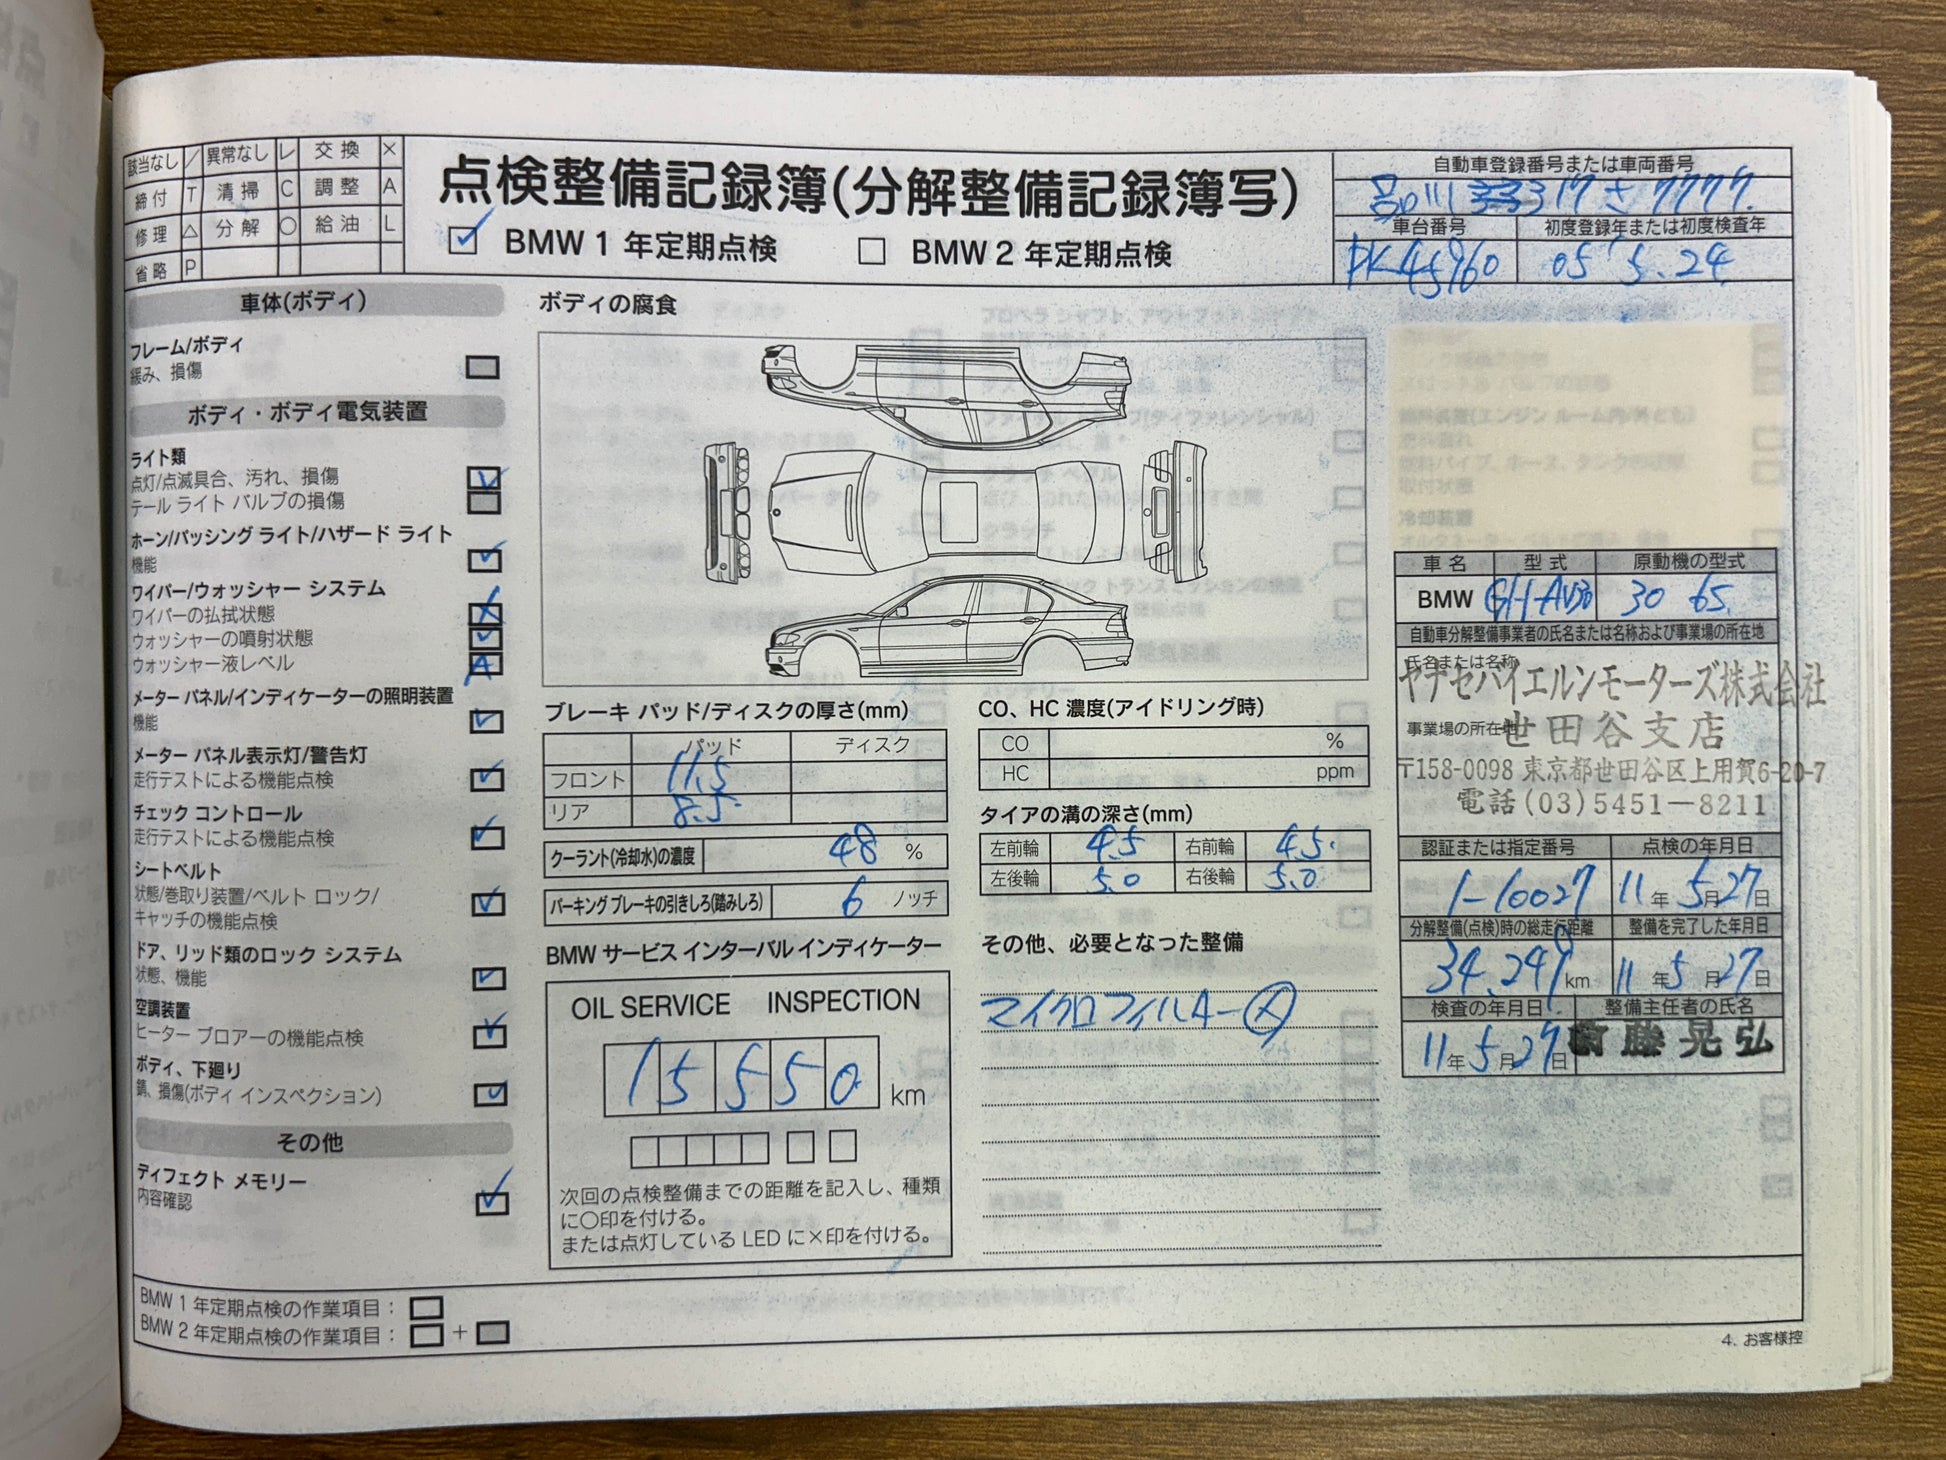 該当なし / 異常なし レ 交換 ×
締付 T 清掃 C 調整 A
修理 △ 分解 ○ 給油 L
省略 P
点検整備記録簿(分解整備記録簿写)
BMW 1 年定期点検 BMW 2 年定期点検
自動車登録番号または車両番号
品川 317 さ 7777
車台番号 初度登録年または初度検査年
PK45960 05 5.24
車体(ボディ)
フレーム/ボディ
緩み、損傷
ボディ・ボディ電気装置
ライト類
点灯/点滅具合、汚れ、損傷
テール ライト バルブの損傷
ホーン/パッシング ライト/ハザード ライト
機能
ワイパー/ウォッシャー システム
ワイパーの払拭状態
ウォッシャーの噴射状態
ウォッシャー液レベル A
メーター パネル/インディケーターの照明装置
機能
メーター パネル表示灯/警告灯
走行テストによる機能点検
チェック コントロール
走行テストによる機能点検
シートベルト
状態/巻取り装置/ベルト ロック/
キャッチの機能点検
ドア、リッド類のロック システム
状態、機能
空調装置
ヒーター ブロアーの機能点検
ボディ、下廻り
錆、損傷(ボディ インスペクション)
その他
ディフェクト メモリー
内容確認
ボディの腐食
ブレーキ パッド/ディスクの厚さ(mm)
パッド ディスク
フロント 11.5
リア 8.5
クーラント(冷却水)の濃度 48 %
パーキング ブレーキの引きしろ(踏みしろ) 6 ノッチ
BMW サービス インターバル インディケーター
OIL SERVICE INSPECTION
15550 km
次回の点検整備までの距離を記入し、種類
に○印を付ける。
または点灯している LED に×印を付ける。
CO、HC 濃度(アイドリング時)
CO %
HC ppm
タイアの溝の深さ(mm)
左前輪 4.5 右前輪 4.5
左後輪 5.0 右後輪 5.0
その他、必要となった整備
マイクロフィルター ⊗
車名 型式 原動機の型式
BMW GH-AV30 30 6S
自動車分解整備事業者の氏名または名称および事業場の所在地
氏名または名称
ヤナセバイエルンモーターズ株式会社
事業場の所在地
世田谷支店
〒158-0098 東京都世田谷区上用賀6-20-7
電話(03)5451-8211
認証または指定番号 点検の年月日
1-10027 11年 5月27日
分解整備(点検)時の総走行距離 整備を完了した年月日
34,249 km 11年 5月27日
検査の年月日 整備主任者の氏名
11年5月27日 藤 晃 弘
BMW 1 年定期点検の作業項目：
BMW 2 年定期点検の作業項目： +
4. お客様控